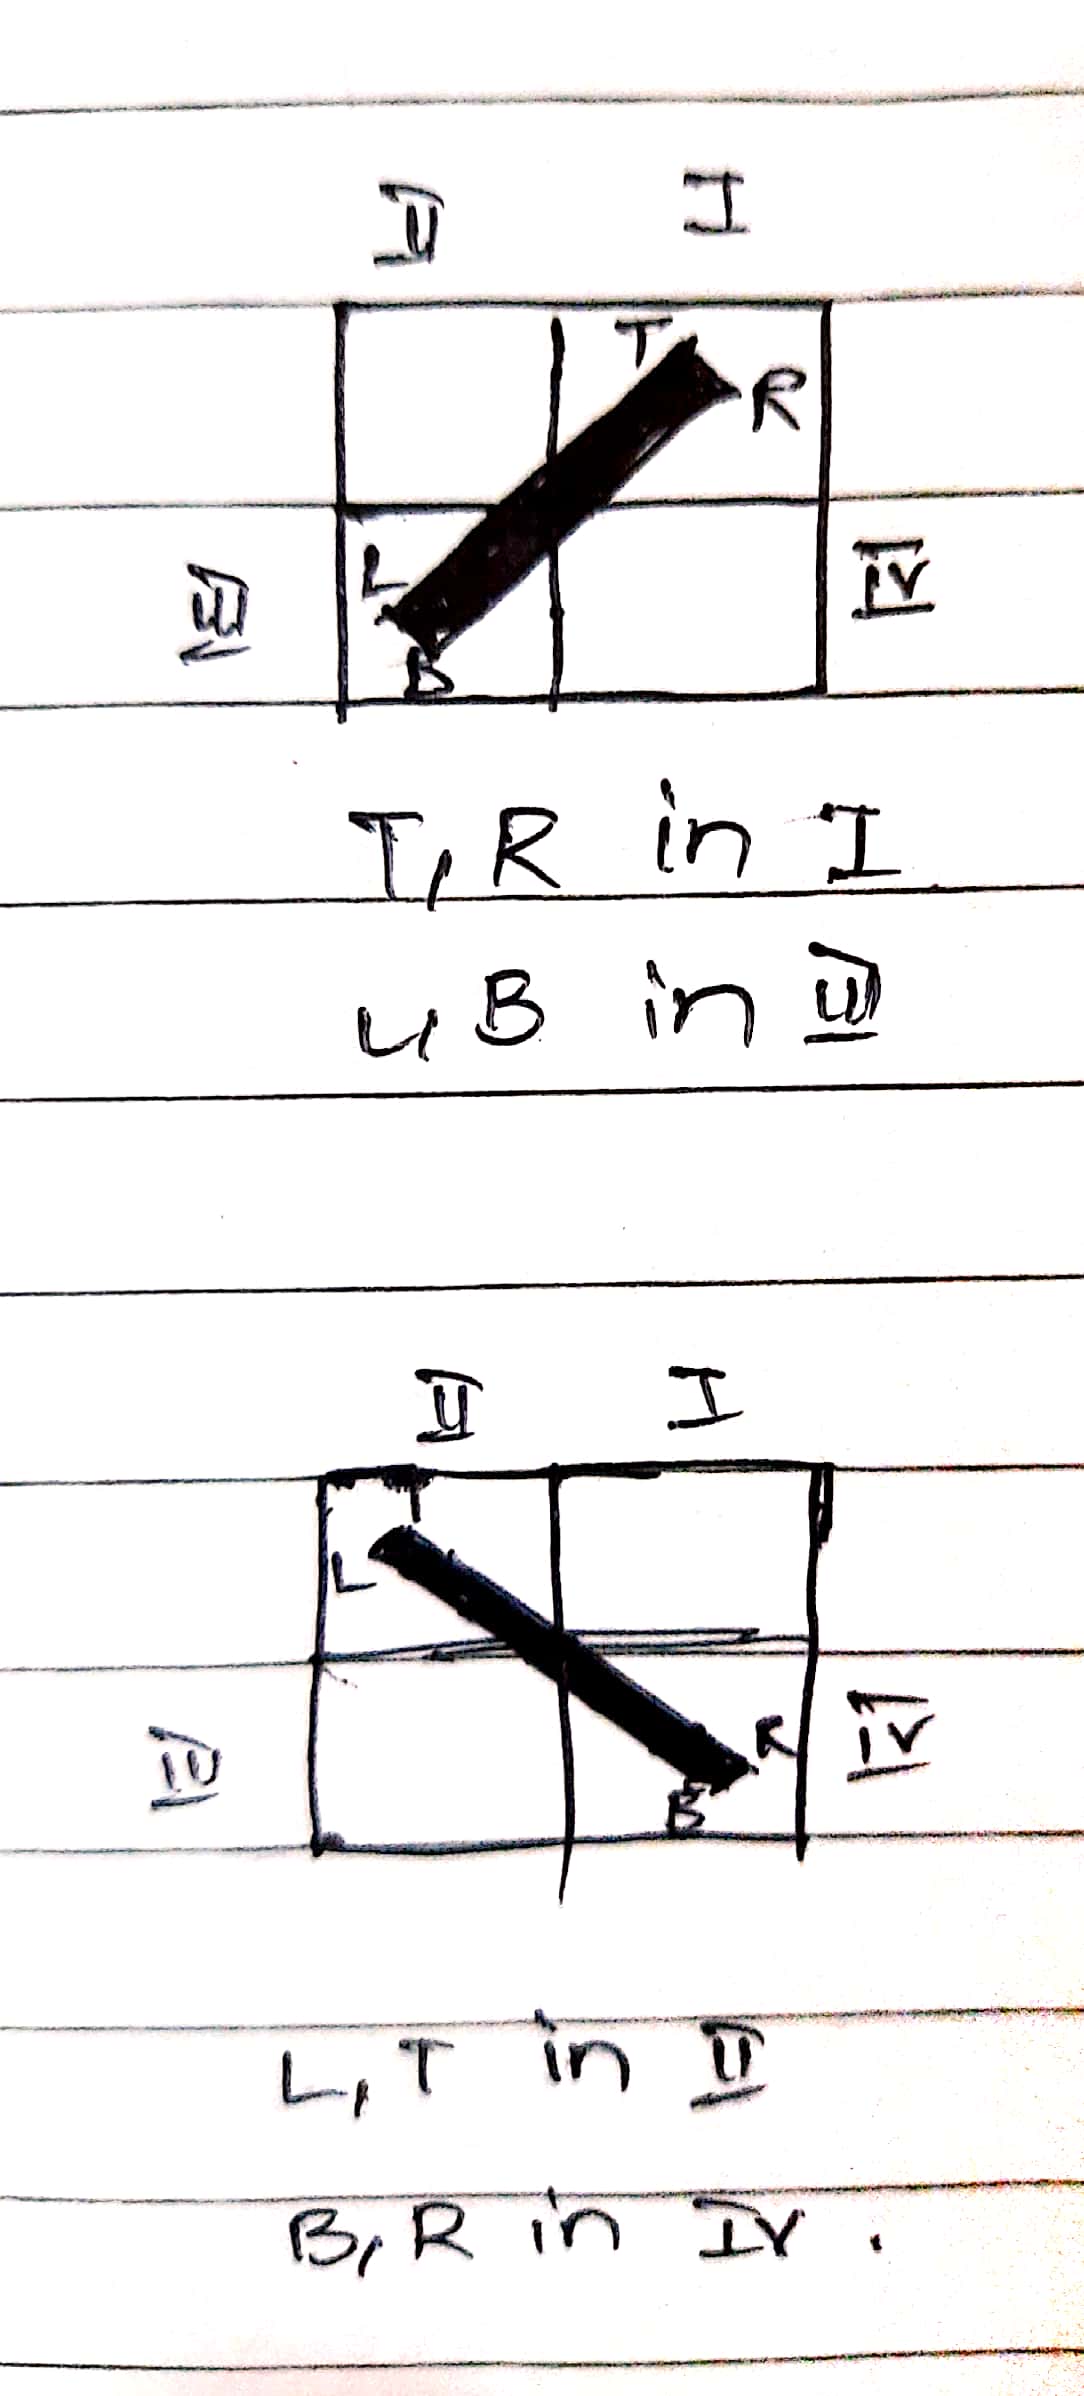 II I
T
R
L
III IV
B
T, R in I
L, B in III
II I
T
L
R
III IV
B
L, T in II
B, R in IV.